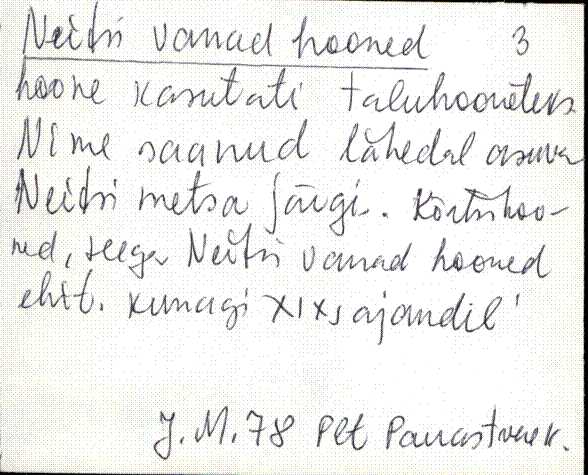 Neitsi vanad hooned 3
hoone kasutati taluhooneteks.
Nime saanud lähedal asuva
Neitsi metsa järgi. Kõrtsihoo-
ned, seega Neitsi vanad hooned
ehit. kunagi XIX sajandil
J. M. 78 Plt